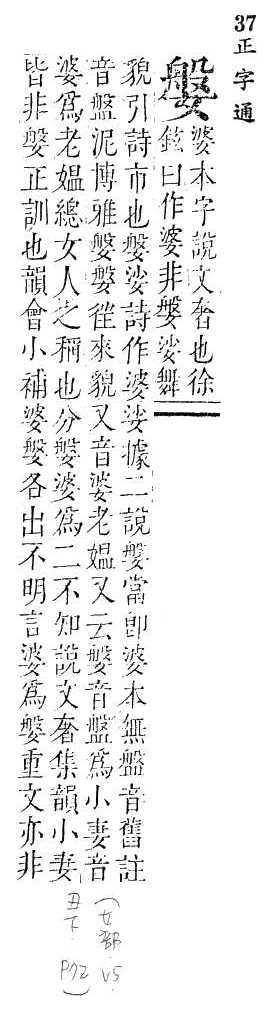 37 正字通
媻 婆本字說文奢也徐
鉉曰作婆非媻娑舞
貌引詩市也媻娑詩作婆娑據二說媻當卽婆本無盤音舊註
音盤泥博雅媻媻徃來貌又音婆老媼又云媻音盤爲小妻音
婆爲老媼總女人之稱也分媻婆爲二不知說文奢集韻小妻
皆非媻正訓也韻會小補婆媻各出不明言婆爲媻重文亦非
(女部 V5
丑下 P72)